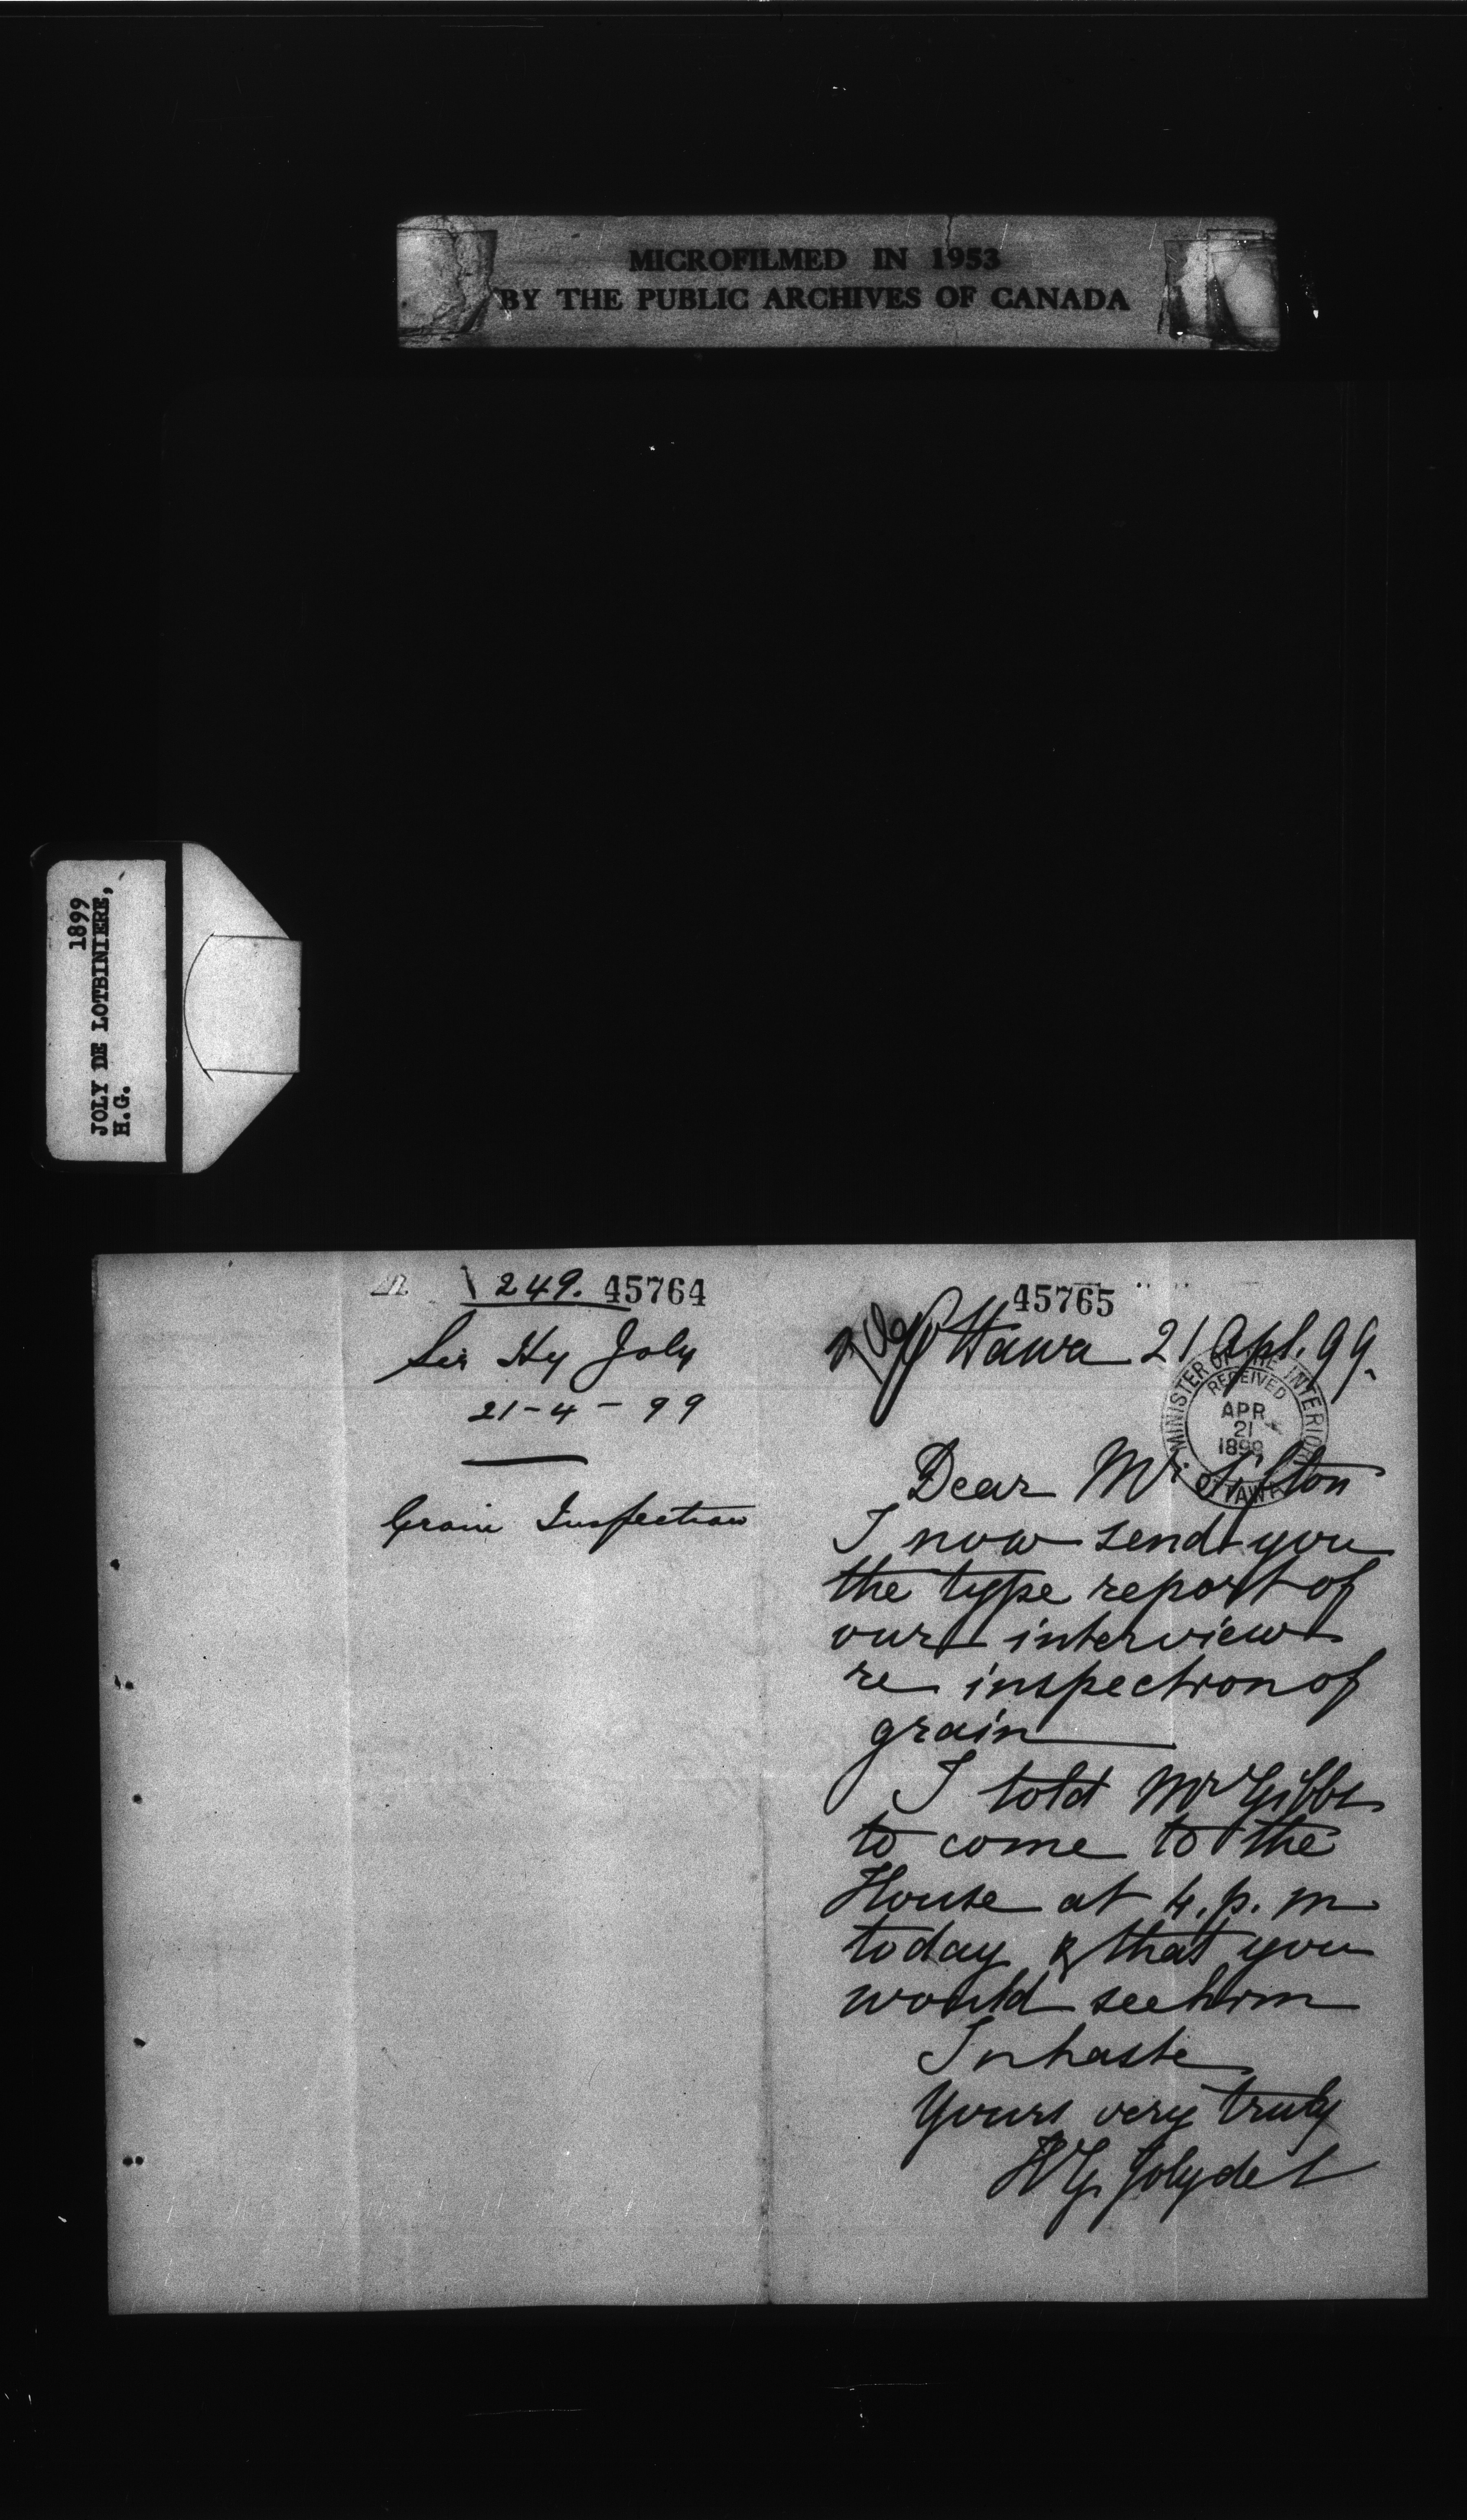 MICROFILMED IN 1953
BY THE PUBLIC ARCHIVES OF CANADA
1899
JOLY DE LOTBINIERE,
H.G.
249. 45764
Sir Hy Joly
21-4-99
Grain Inspection
45765
Ottawa 21 Apl. 99.
MINISTER OF THE INTERIOR
RECEIVED
APR
21
1899
OTTAWA
Dear Mr Sifton
I now send you
the type report of
our interview
re inspection of
grain
I told Mr Gibbs
to come to the
House at 4. p. m
today & that you
would see him
In haste
Yours very truly
HG Joly de L